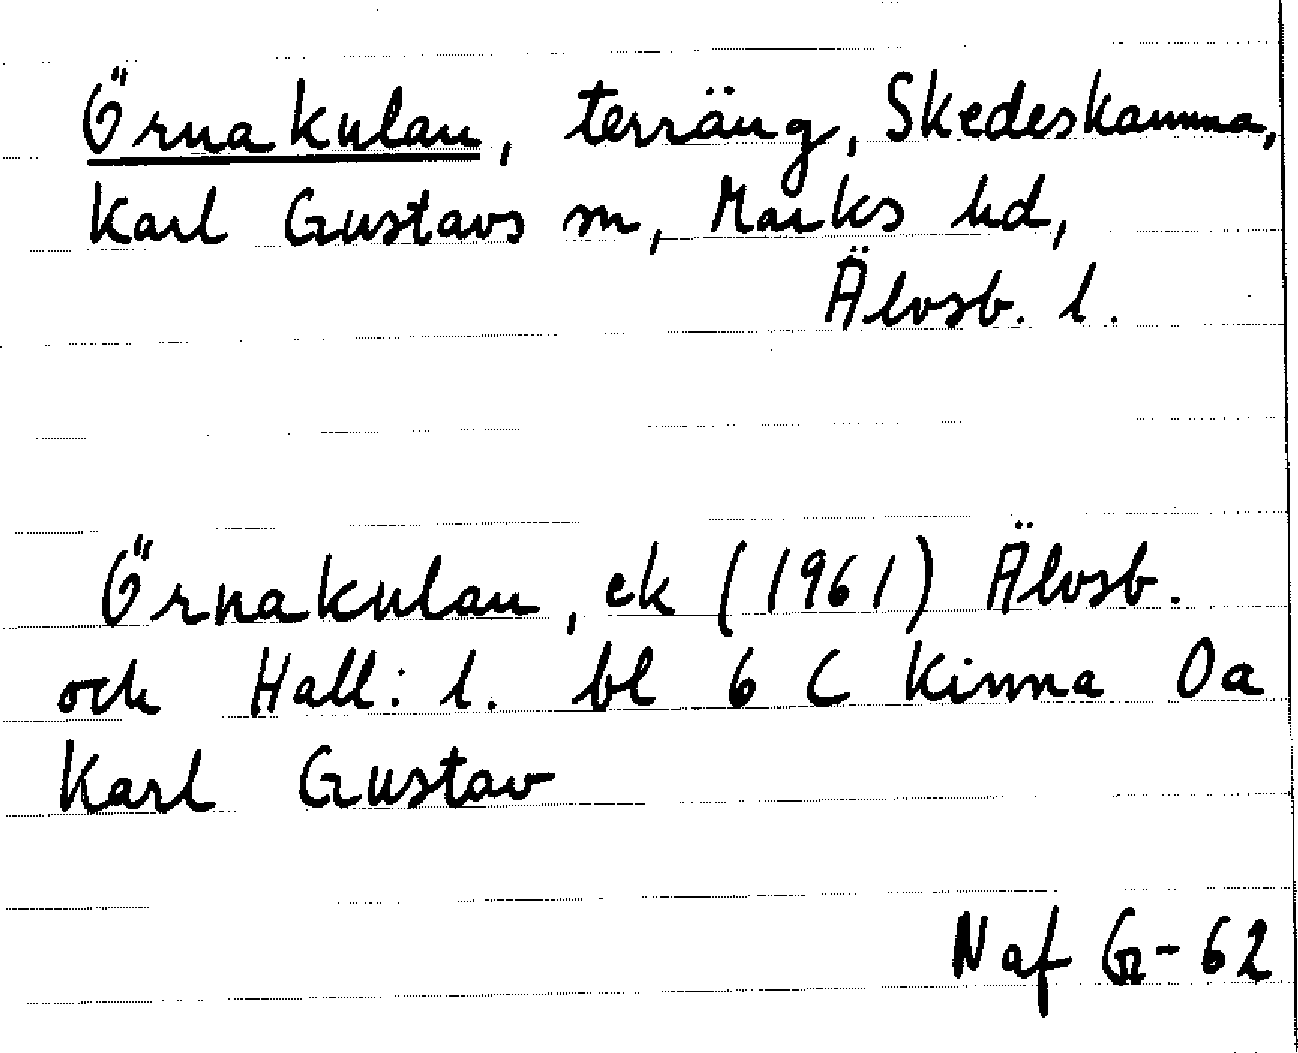 Örnakulan, terräng, Skedeskamma,
Karl Gustavs sn, Marks hd,
Älvsb. l.
Örnakulan, ek (1961) Älvsb.
och Hall. l. bl 6 C Kinna Oa
Karl Gustav
Naf G-62